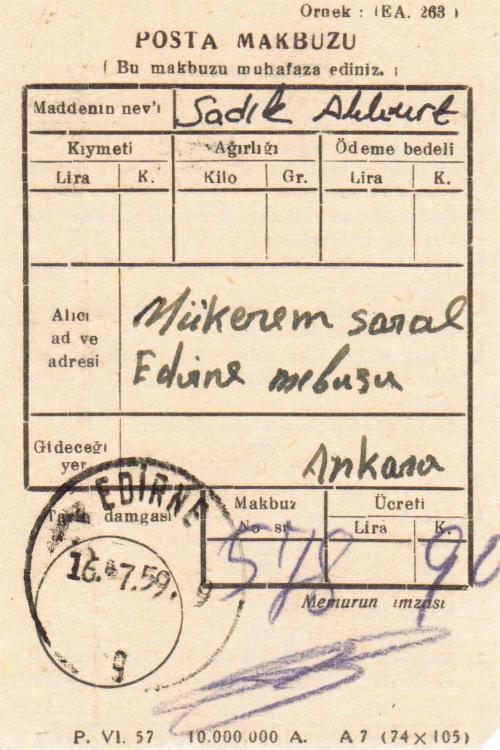 Örnek : (EA. 263)
POSTA MAKBUZU
( Bu makbuzu muhafaza ediniz. )
Maddenin nev'i Sadık Akkurt
Kıymeti Ağırlığı Ödeme bedeli
Lira K. Kilo Gr. Lira K.
Alıcı ad ve adresi
Mükerem saral
Edirne mebusu
Gideceği yer Ankara
EDİRNE
Tarih damgası
16.7.59. 9
9
Makbuz No sı Ücreti
Lira K
578 90
Memurun imzası
P. VI. 57 10.000.000 A. A 7 (74×105)